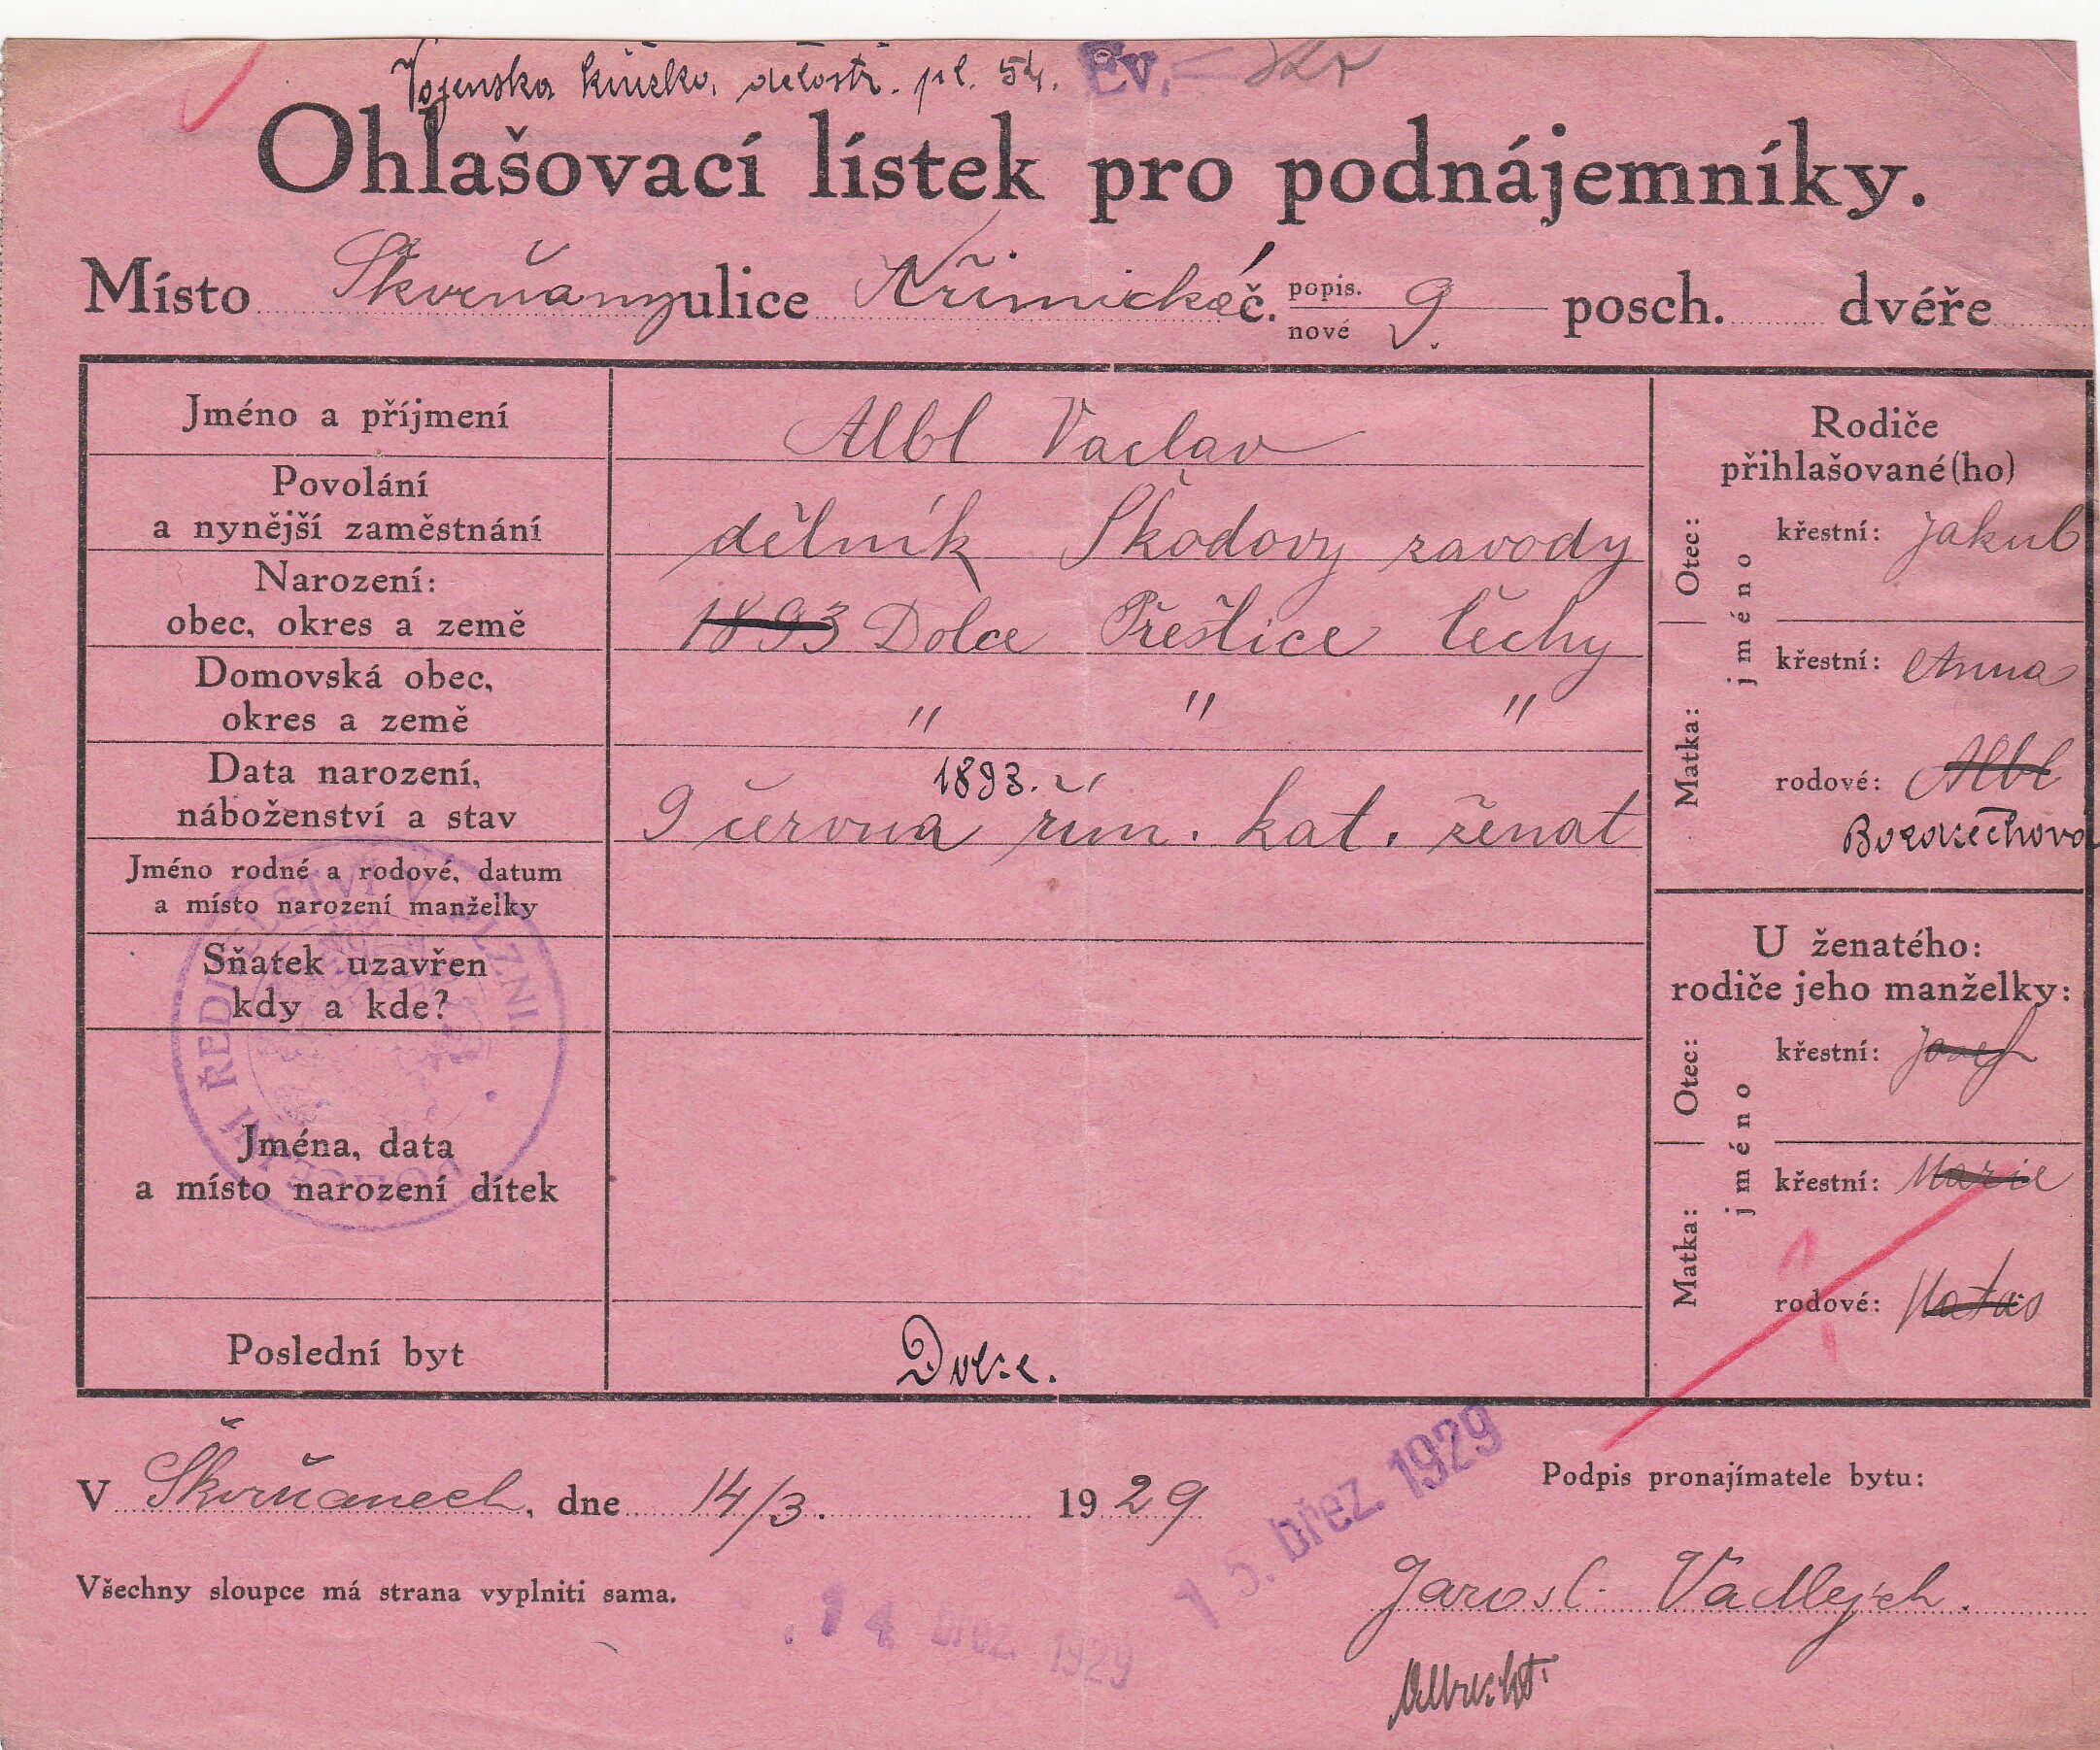 Vojenska knižka, dělostř. pl. 54. Ev.
Ohlašovací lístek pro podnájemníky.
Místo Škvrňany ulice Křimická č. popis. nové 9. posch. dvéře
Jméno a příjmení Albl Vaclav
Povolání
a nynější zaměstnání dělník Škodovy zavody
Narození:
obec, okres a země 1893 Dolce Přeštice Čechy
Domovská obec,
okres a země " " "
Data narození,
náboženství a stav 9 června 1893. řím. kat. ženat
Jméno rodné a rodové, datum
a místo narození manželky
Sňatek uzavřen
kdy a kde?
Jména, data
a místo narození dítek
Poslední byt Dolce.
Rodiče
přihlašované(ho)
Otec: jméno křestní: Jakub
Matka: křestní: Anna
rodové: Albl
U ženatého:
rodiče jeho manželky:
Otec: jméno křestní: Josef
Matka: křestní: Marie
rodové:
POLICEJNÍ ŘEDITELSTVÍ V PLZNI.
V Škvrňanech, dne 14/3. 1929
15. břez. 1929
Podpis pronajímatele bytu:
Všechny sloupce má strana vyplniti sama.
14 břez. 1929
Jarosl. Vadlejch.